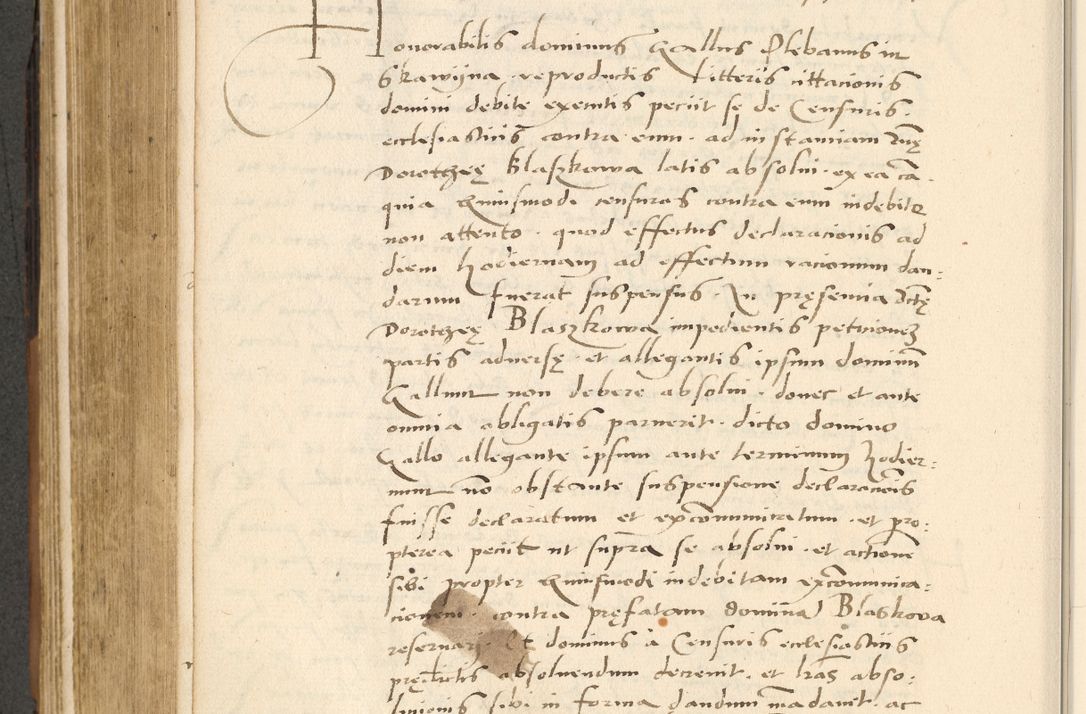 Honorabilis dominus Gallus Plebanus in
Skawijna reproductis litteris cittacionis
domini debite executis peciit se de Censuris
ecclesiasticis contra eum ad instanciam dnę
Dorotheę Blaszkowa latis absolvi ex ea cā
quia huiusmodi censuras contra eum indebite
non attento quod effectus declaracionis ad
diem hodiernam ad effectum racionum dan:
darum fuerat suspensus. In pręsencia dictę
Dorotheę Blaszkowa impedientis peticionem
partis adversę et allegantis ipsum dominum
Gallum non debere absolvi donec et ante
omnia obligatis paruerit dicto domino
Gallo allegante ipsum ante terminum hodier:
num nō obstante suspensione declaracionis
fuisse declaratum et excōmunicatum et pro:
pterea peciit ut supra se absolvi et actionē
sibi propter huiusmodi indebitam excōmunica:
cionem contra pręfatam dominā Blaskova
reservari Et dominus a Censuris ecclesiasticis
prędictis absolvendum decrevit et lras abso:
lucionis sibi in forma dandum mādavit ac